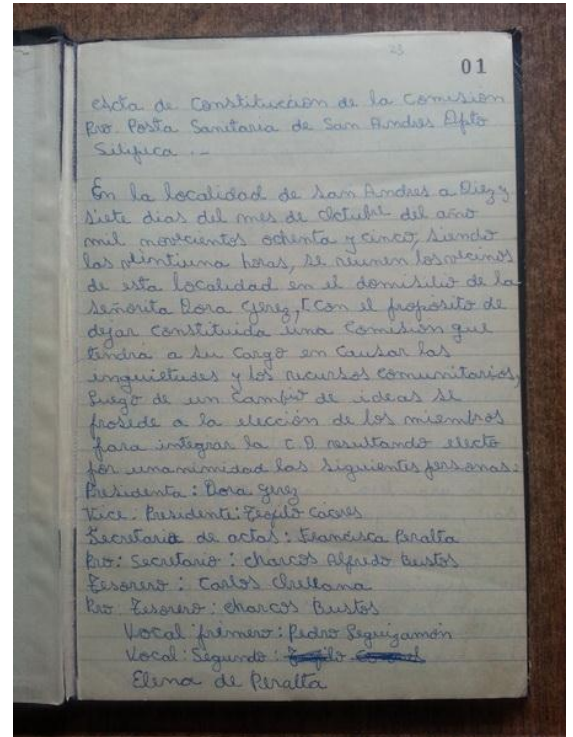 23
01
Acta de Constitución de la Comisión
Pro. Posta Sanitaria de San Andres Dpto
Silipica . –
En la localidad de San Andres a Diez y
siete dias del mes de Octubre del año
mil novecientos ochenta y cinco, siendo
las vintiuna horas, se reunen los vecinos
de esta localidad en el domisilio de la
señorita Dora Gerez, con el proposito de
dejar constituida una Comisión que
tendra a su cargo en causar las
inquietudes y los recursos comunitarios,
Luego de un cambio de ideas se
prosede a la elección de los miembros
para integrar la C.D. resultando electo
por unanimidad las siguientes personas:
Presidenta: Dora Gerez
Vice. Presidente: Teofilo Caceres
Secretaria de actas: Francisca Peralta
Pro: Secretario: Marcos Alfredo Bustos
Tesorero: Carlos Orellana
Pro Tesorero: Marcos Bustos
Vocal primero: Pedro Leguizamón
Vocal: Segundo:
Elena de Peralta